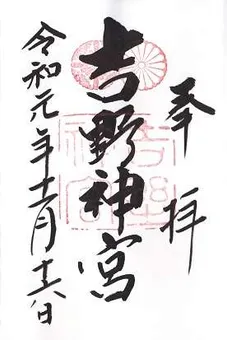 奉拝
吉野神宮
令和元年十一月十六日